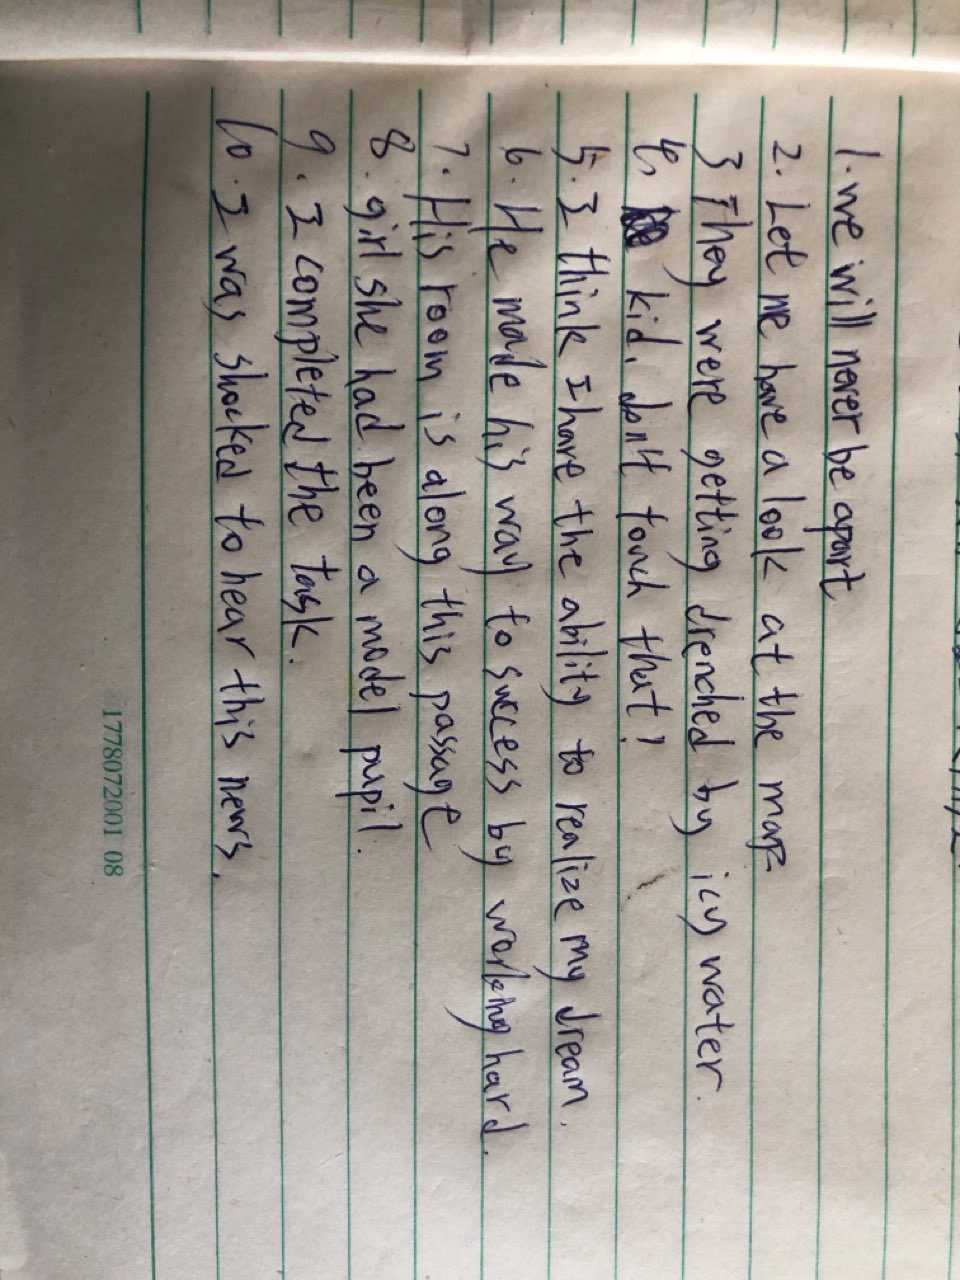 1. we will never be apart
2. Let me have a look at the map
3 They were getting drenched by icy water.
4. kid, don't touch that!
5. I think I have the ability to realize my dream.
6. He made his way to success by working hard.
7. His room is along this passage
8. girl she had been a model pupil.
9. I completed the task.
10. I was shocked to hear this news.
1778072001 08